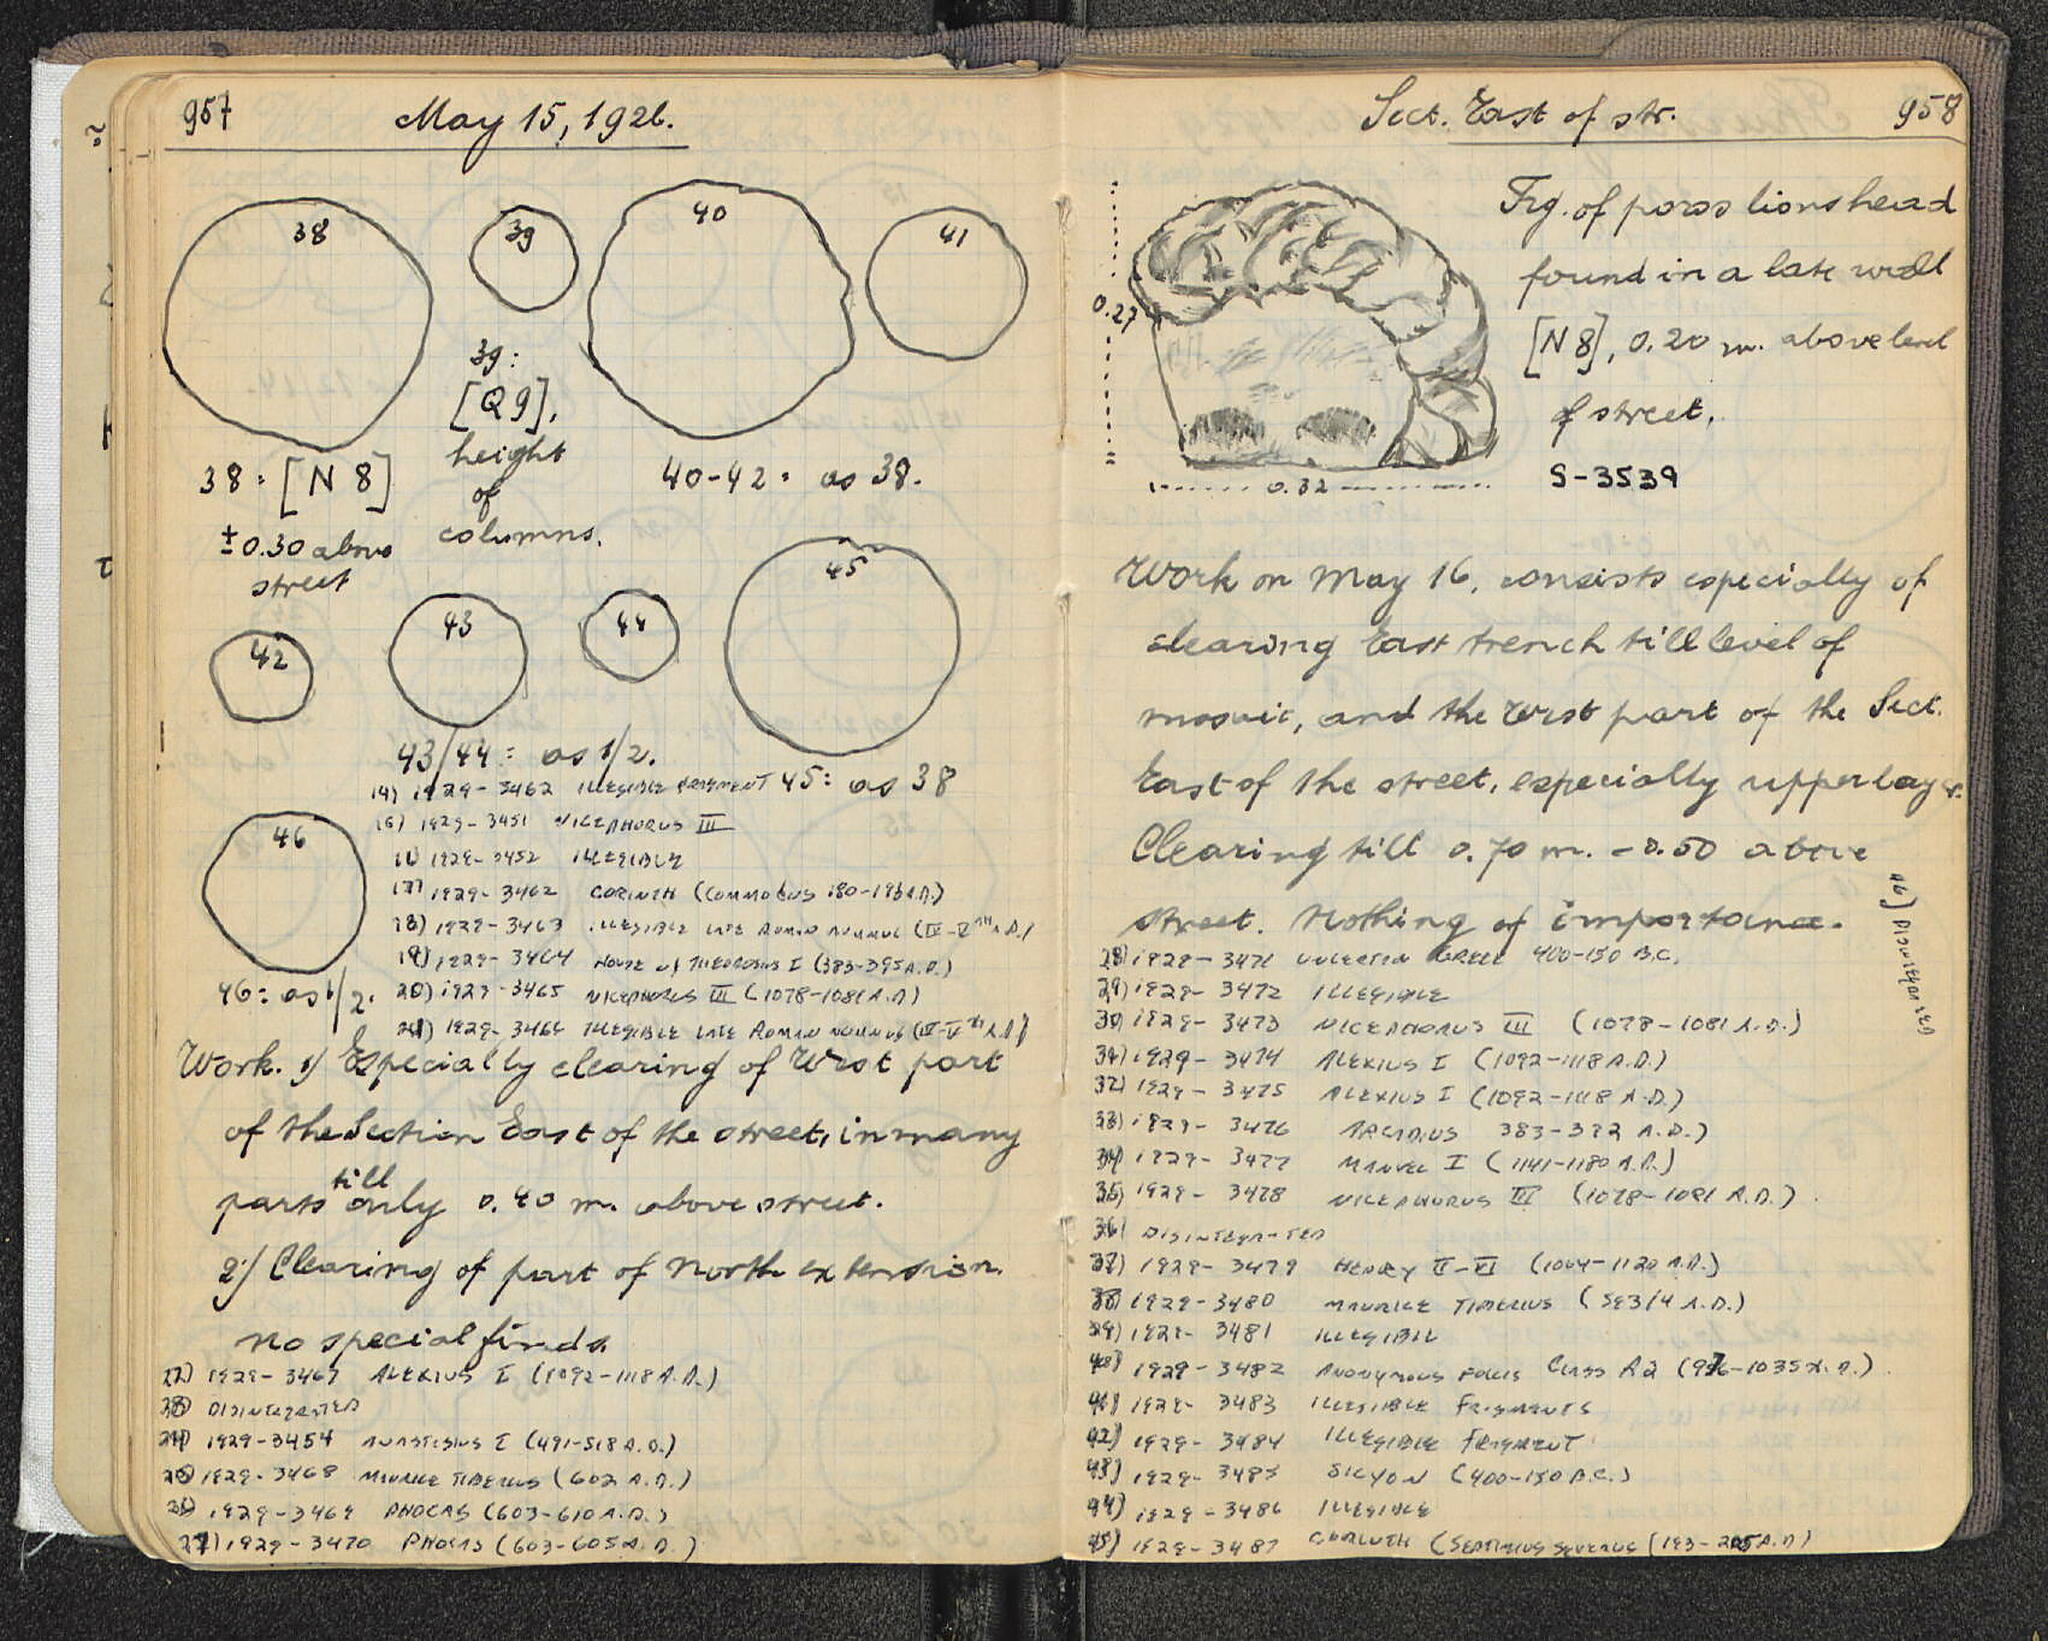 957
May 15, 1926.
38
39
40
41
39:
[Q9],
height
of
columns.
38: [N 8]
±0.30 above
street
40-42: as 38.
42
43
44
45
43/44: as 1/2.
45: as 38
46
46: as 1/2.
14) 1929-3462 ILLEGIBLE FRAGMENT
15) 1929-3451 NICEPHORUS III
16) 1929-3452 ILLEGIBLE
17) 1929-3462 CORINTH (COMMODUS 180-193 A.D.)
18) 1929-3463 ILLEGIBLE LATE ROMAN NUMMUS (IV-VTH A.D.)
19) 1929-3464 HOUSE of THEODOSIUS I (383-395 A.D.)
20) 1929-3465 NICEPHORUS III (1078-1081 A.D)
21) 1929-3466 ILLEGIBLE LATE ROMAN NUMMUS (IV-VTH A.D)
Work. 1) Especially clearing of West part
of the Section East of the street, in many
parts till only 0.40 m. above street.
2:) Clearing of part of North extension.
no special finds.
22) 1929-3467 ALEXIUS I (1092-1118 A.D.)
23) DISINTEGRATED
24) 1929-3454 ANASTASIUS I (491-518 A.D.)
25) 1929-3468 MAURICE TIBERIUS (602 A.D.)
26) 1929-3469 PHOCAS (603-610 A.D.)
27) 1929-3470 PHOCAS (603-605 A.D.)
Sect. East of str.
958
0.27
0.32
Frg. of poros lions head
found in a late wall
[N 8], 0.20 m. above level
of street.
S-3539
Work on May 16, consists especially of
clearing East trench till level of
mosaic, and the West part of the Sect.
East of the street, especially upper layer.
Clearing till 0.70 m. - 0.50 above
street. Nothing of importance.
46) DISINTEGRATED
28) 1929-3471 UNCERTAIN GREEK 400-150 B.C.
29) 1929-3472 ILLEGIBLE
30) 1929-3473 NICEPHORUS III (1078-1081 A.D.)
31) 1929-3474 ALEXIUS I (1092-1118 A.D.)
32) 1929-3475 ALEXIUS I (1092-1118 A.D.)
33) 1929-3476 ARCADIUS 383-392 A.D.)
34) 1929-3477 MANUEL I (1141-1180 A.D.)
35) 1929-3478 NICEPHORUS III (1078-1081 A.D.)
36) DISINTEGRATED
37) 1929-3479 HENRY II-VI (1004-1120 A.D.)
38) 1929-3480 MAURICE TIBERIUS (583/4 A.D.)
39) 1929-3481 ILLEGIBLE
40) 1929-3482 ANONYMOUS FOLLIS CLASS A2 (976-1035 A.D.)
41) 1929-3483 ILLEGIBLE FRAGMENTS
42) 1929-3484 ILLEGIBLE FRAGMENT
43) 1929-3485 SICYON (400-150 B.C.)
44) 1929-3486 ILLEGIBLE
45) 1929-3487 CORINTH (SEPTIMIUS SEVERUS (193-205 A.D)